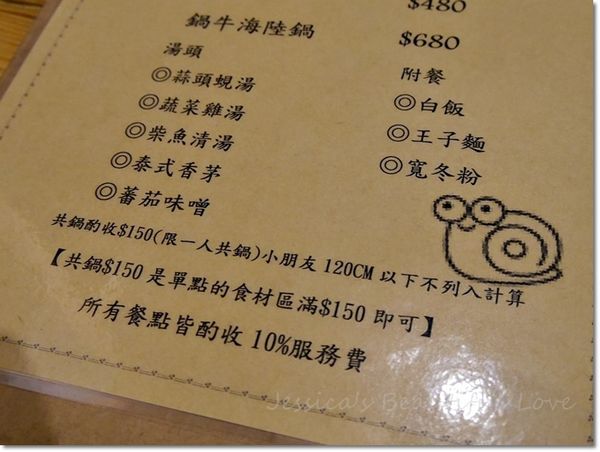 $480
鍋牛海陸鍋
$680
湯頭
附餐
◎蒜頭蜆湯
◎白飯
◎蔬菜雞湯
◎王子麵
◎柴魚清湯
◎寬冬粉
◎泰式香茅
◎蕃茄味噌
共鍋酌收$150(限一人共鍋)小朋友120CM以下不列入計算
【共鍋$150是單點的食材區滿$150即可】
所有餐點皆酌收10%服務費
Jessica's Be Love